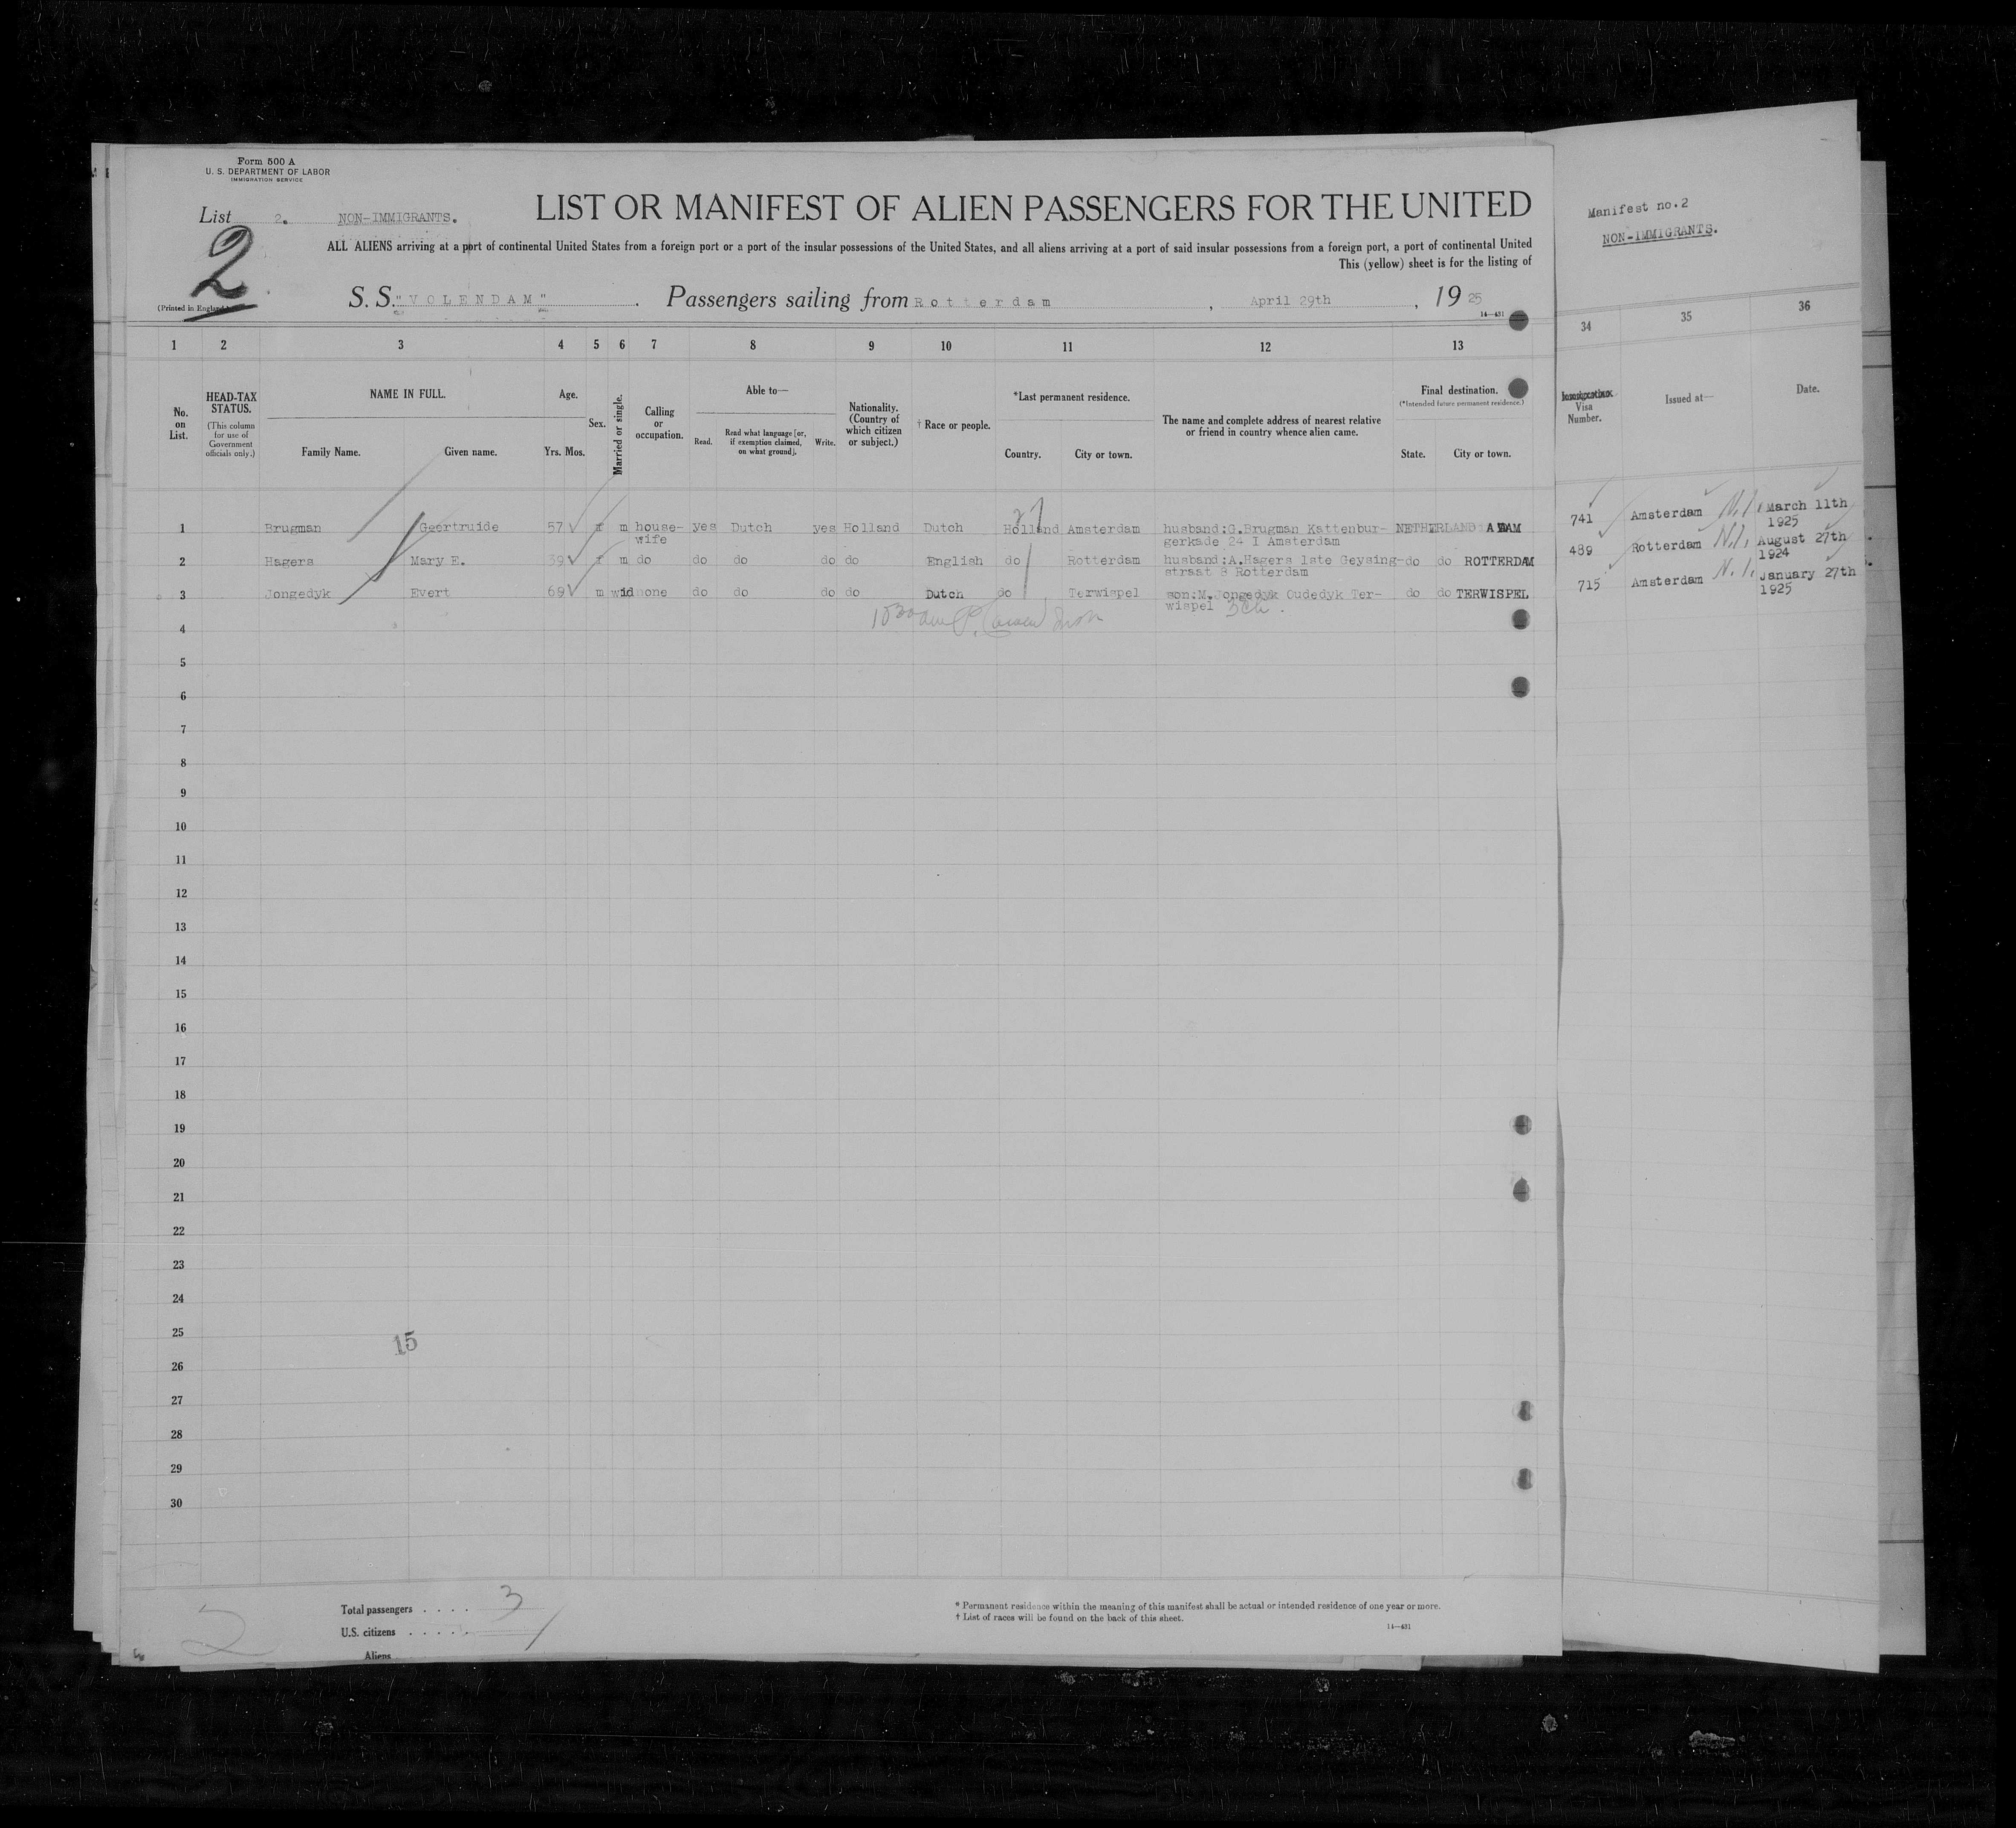 Form 500 A
U. S. DEPARTMENT OF LABOR
IMMIGRATION SERVICE
List 2. NON-IMMIGRANTS.
LIST OR MANIFEST OF ALIEN PASSENGERS FOR THE UNITED
2
ALL ALIENS arriving at a port of continental United States from a foreign port or a port of the insular possessions of the United States, and all aliens arriving at a port of said insular possessions from a foreign port, a port of continental United
This (yellow) sheet is for the listing of
(Printed in England)
S. S. "VOLENDAM". Passengers sailing from Rotterdam, April 29th, 19 25
14—431
Manifest no.2
NON-IMMIGRANTS.
1 2 3 4 5 6 7 8 9 10 11 12 13 34 35 36
No. on List.
HEAD-TAX STATUS.
(This column for use of Government officials only.)
NAME IN FULL.
Family Name. Given name.
Age.
Yrs. Mos.
Sex.
Married or single.
Calling or occupation.
Able to—
Read. Read what language [or, if exemption claimed, on what ground]. Write.
Nationality. (Country of which citizen or subject.)
† Race or people.
*Last permanent residence.
Country. City or town.
The name and complete address of nearest relative or friend in country whence alien came.
Final destination.
(*Intended future permanent residence.)
State. City or town.
Visa Number.
Issued at—
Date.
1 Brugman Geertruide 57 f m house- yes Dutch yes Holland Dutch Holland Amsterdam husband:G.Brugman Kattenbur- NETHERLAND A'DAM 741 Amsterdam N.I. March 11th
wife gerkade 24 I Amsterdam 1925
2 Hagers Mary E. 39 f m do do do do do English do Rotterdam husband:A.Hagers late Geysing- do do ROTTERDAM 489 Rotterdam N.I. August 27th
straat 8 Rotterdam 1924
3 Jongedyk Evert 69 m wid none do do do do Dutch do Terwispel son:M.Jongedyk Oudedyk Ter- do do TERWISPEL 715 Amsterdam N.I. January 27th
wispel 1925
4
5
6
7
8
9
10
11
12
13
14
15
16
17
18
19
20
21
22
23
24
25
15
26
27
28
29
30
2
Total passengers . . . . 3
U.S. citizens . . . . .
Aliens
* Permanent residence within the meaning of this manifest shall be actual or intended residence of one year or more.
† List of races will be found on the back of this sheet.
14—431